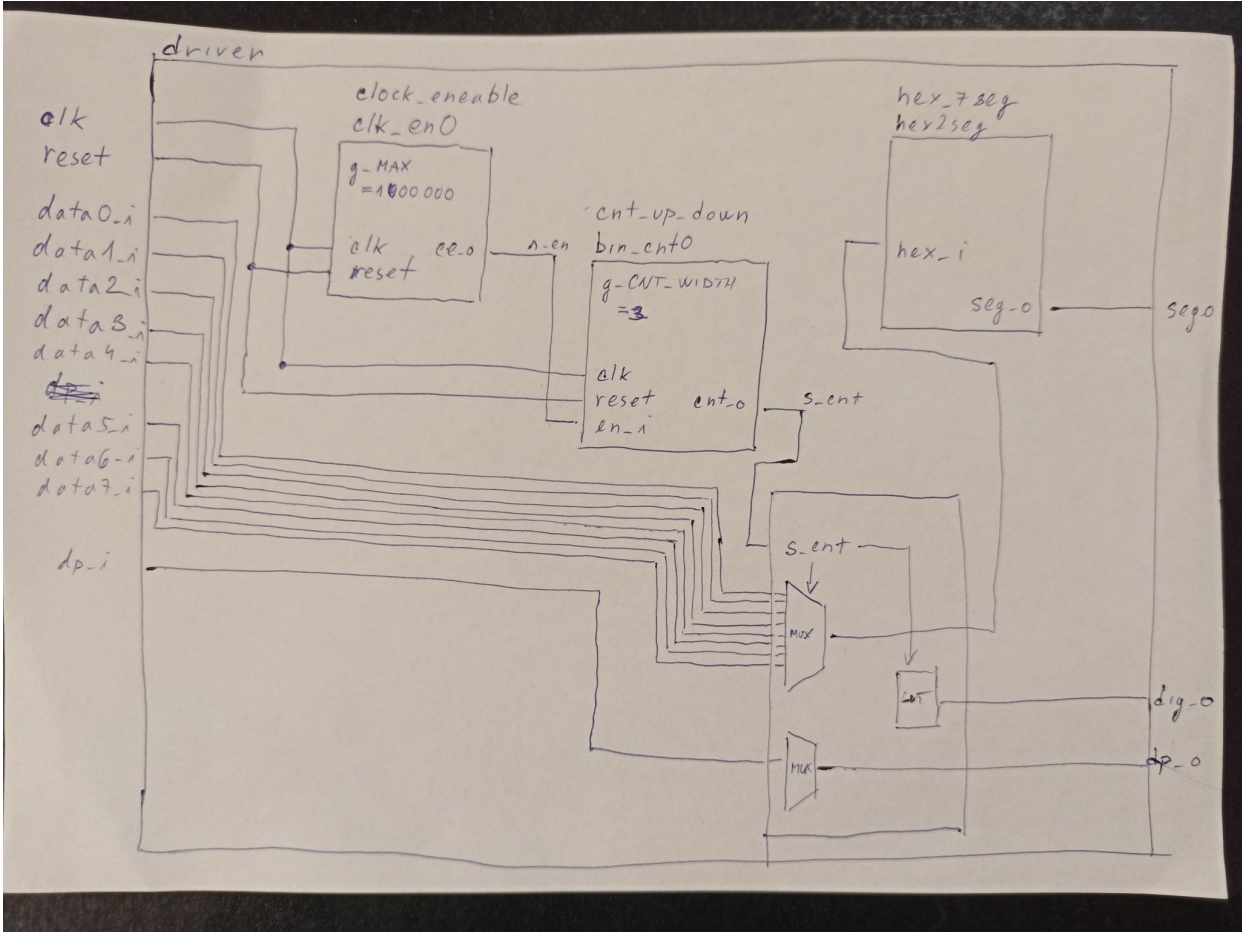 driver
clk
reset
data0_i
data1_i
data2_i
data3_i
data4_i
data5_i
data6_i
data7_i
dp_i
clock_eneable
clk_en0
g_MAX
=1000000
clk
reset
ce_o
cnt_up_down
bin_cnt0
g_CNT_WIDTH
=3
clk
reset
en_i
cnt_o
s_cnt
hex_7seg
hex2seg
hex_i
seg_o
s_cnt
MUX
MUX
dig_o
dp_o